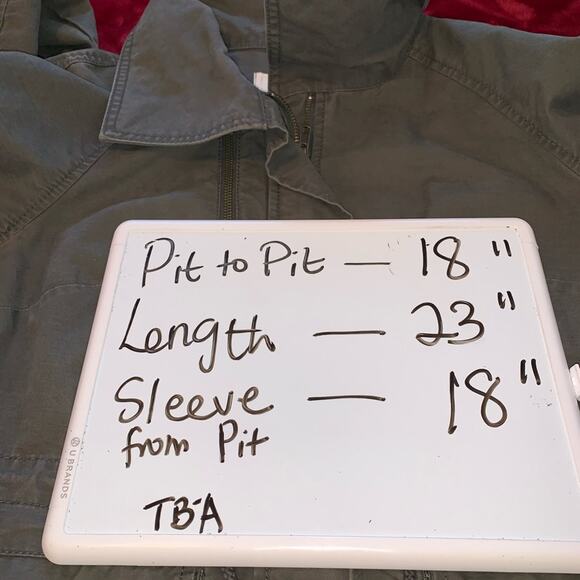 Pit to Pit — 18"
Length — 23"
Sleeve — 18"
from Pit
TBA
U BRANDS